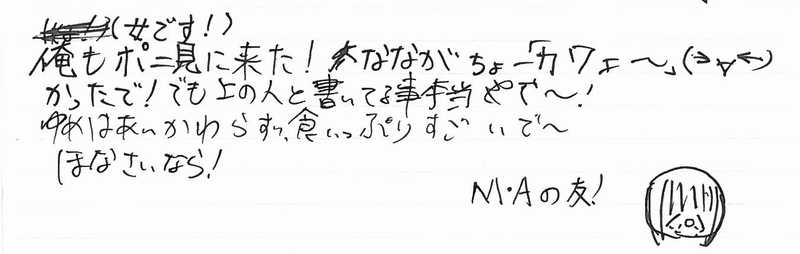 (女です!)
俺もポニ見に来た! ななながちょー「カワェ〜」(>∀<)
かったで!でも上の人と書いてる事本当やで〜!
ゆめはあいかわらずっ、食いっぷりすごいで〜
ほなさいなら!
M・Aの友!